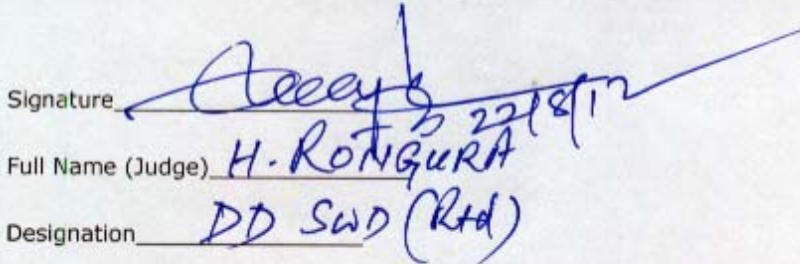 Signature 22/8/12
Full Name (Judge) H. RONGURA
Designation DD SWD (Rtd)